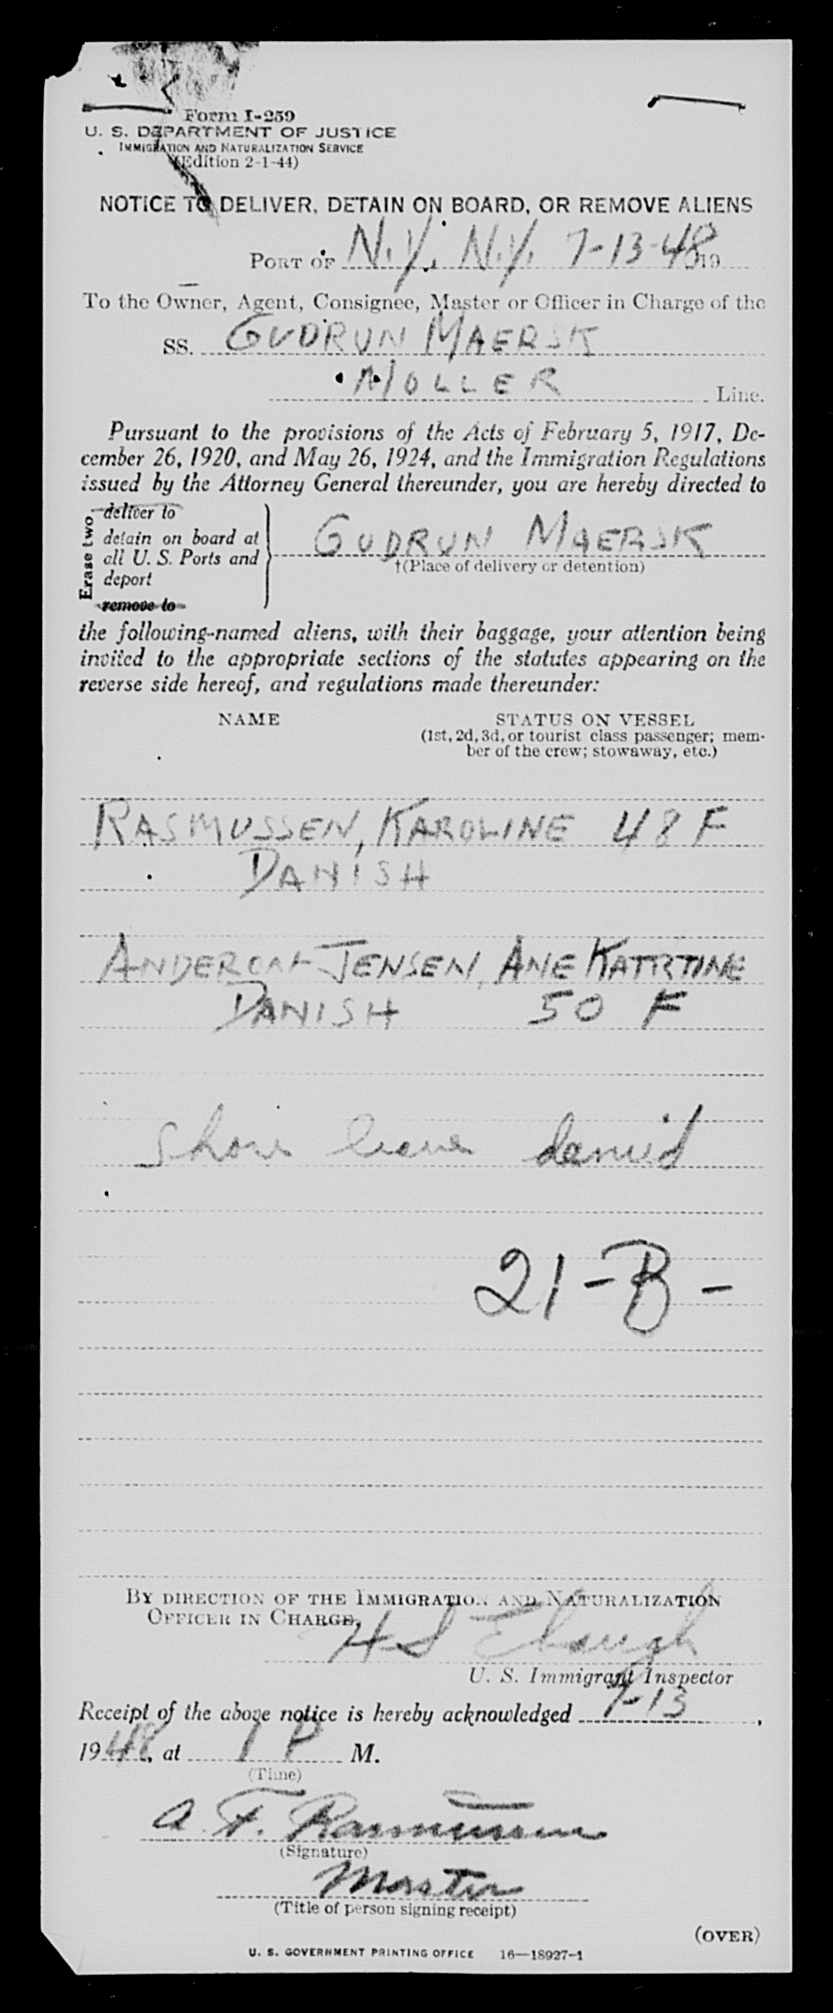 Form I-259
U. S. DEPARTMENT OF JUSTICE
IMMIGRATION AND NATURALIZATION SERVICE
(Edition 2-1-44)
NOTICE TO DELIVER, DETAIN ON BOARD, OR REMOVE ALIENS
PORT OF N.Y. N.Y. 7-13-48 19
To the Owner, Agent, Consignee, Master or Officer in Charge of the
SS. GUDRUN MAERSK
MOLLER Line.
Pursuant to the provisions of the Acts of February 5, 1917, De-
cember 26, 1920, and May 26, 1924, and the Immigration Regulations
issued by the Attorney General thereunder, you are hereby directed to
Erase two
deliver to
detain on board at
all U. S. Ports and
deport
remove to
GUDRUN MAERSK
†(Place of delivery or detention)
the following-named aliens, with their baggage, your attention being
invited to the appropriate sections of the statutes appearing on the
reverse side hereof, and regulations made thereunder:
NAME STATUS ON VESSEL
(1st, 2d, 3d, or tourist class passenger; mem-
ber of the crew; stowaway, etc.)
RASMUSSEN, KAROLINE 48 F
DANISH
JENSEN, ANE
DANISH 50 F
Shore leave denied
21-B-
BY DIRECTION OF THE IMMIGRATION AND NATURALIZATION
OFFICER IN CHARGE,
H S Ebaugh
U. S. Immigrant Inspector
Receipt of the above notice is hereby acknowledged 7-13,
1948, at 1 P M.
(Time)
A. F. Rasmussen
(Signature)
Master
(Title of person signing receipt)
(OVER)
U. S. GOVERNMENT PRINTING OFFICE 16—18927-1